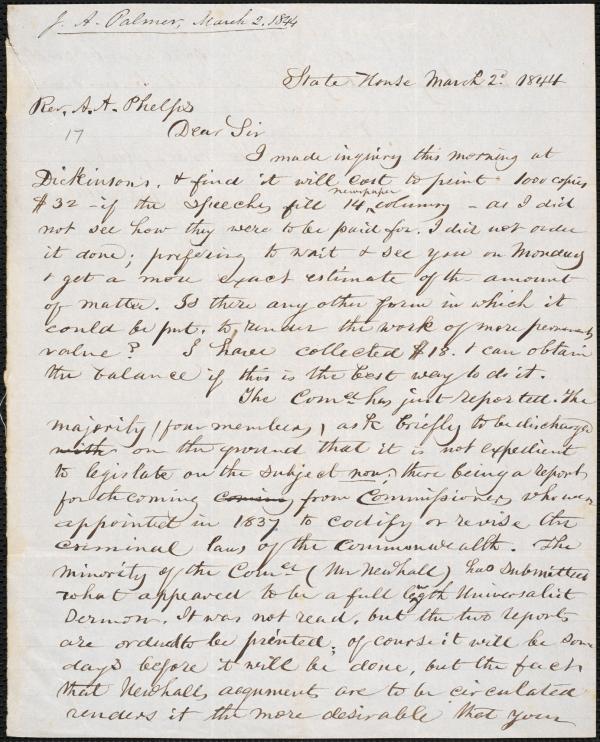 J. A. Palmer, March 2, 1844
State House March 2d 1844
Rev. A. A. Phelps
17
Dear Sir
I made inquiry this morning at
Dickinson's, & find it will cost to print 1000 copies
newspaper
$32 if the Speeches fill 14 columns – as I did
not see how they were to be paid for. I did not order
it done; prefering to wait & see you on Monday
& get a more exact estimate of the amount
of matter. Is there any other form in which it
could be put, to render the work of more permanent
value? I have collected $18. & can obtain
the balance if this is the best way to do it.
The Comee has just reported. The
majority (four members) ask briefly to be discharged
with on the ground that it is not expedient
to legislate on the subject now, there being a report
forthcoming coming from Commissioners who were
appointed in 1837 to codify or revise the
criminal laws of the Commonwealth. The
minority of the Comee (Mr Newhall) has submitted
what appeared to be a full length Universalist
Sermon. It was not read, but the two reports
are ordered to be printed; of course it will be some
days before it will be done, but the fact
that Newhalls arguments are to be circulated
renders it the more desirable that your